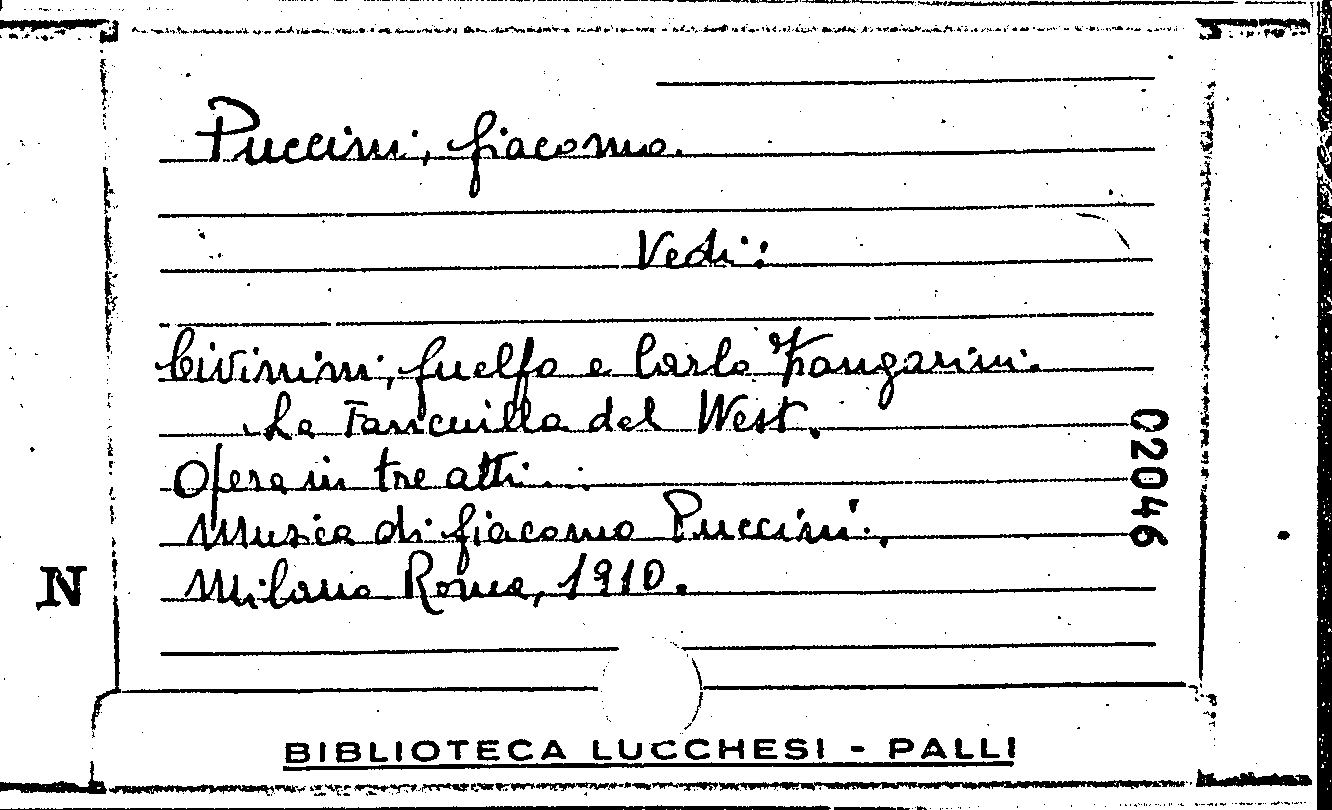 Puccini, Giacomo.
Vedi:
Civinini, Guelfo e Carlo Zangarini.
La Fanciulla del West.
Opera in tre atti...
Musica di Giacomo Puccini.
Milano Roma, 1910.
02046
N
BIBLIOTECA LUCCHESI - PALLI